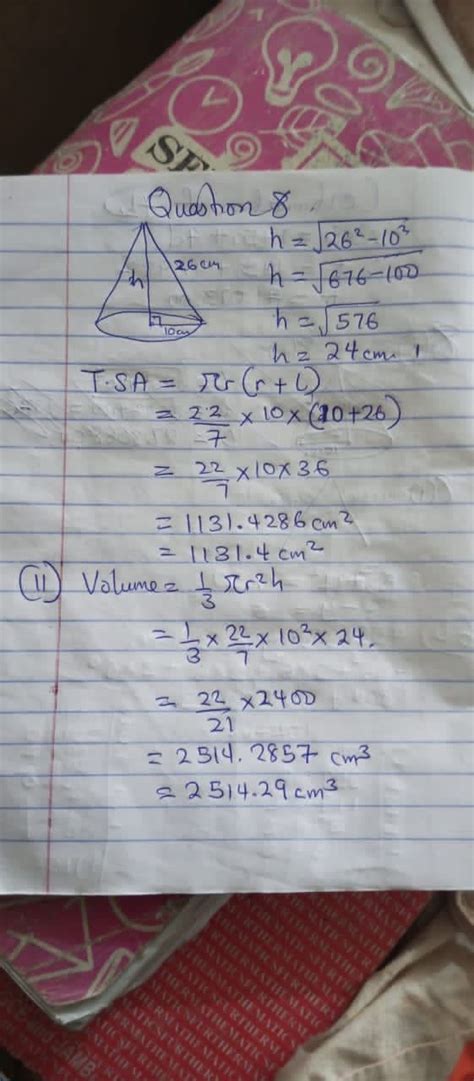 SE
Question 8.
h = √26² - 10²
26cm
h
h = √676 - 100
10cm
h = √576
h = 24cm.
T.SA = πr (r + l)
= 22/7 × 10 × (10+26)
= 22/7 × 10 × 36
= 1131.4286 cm²
= 1131.4 cm²
(11) Volume = 1/3 πr²h
= 1/3 × 22/7 × 10² × 24.
= 22/21 × 2400
= 2514.2857 cm³
= 2514.29 cm³